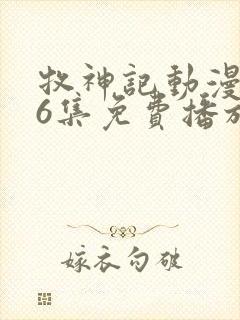 牧神記動漫
6集免費播放
嫁衣勾破